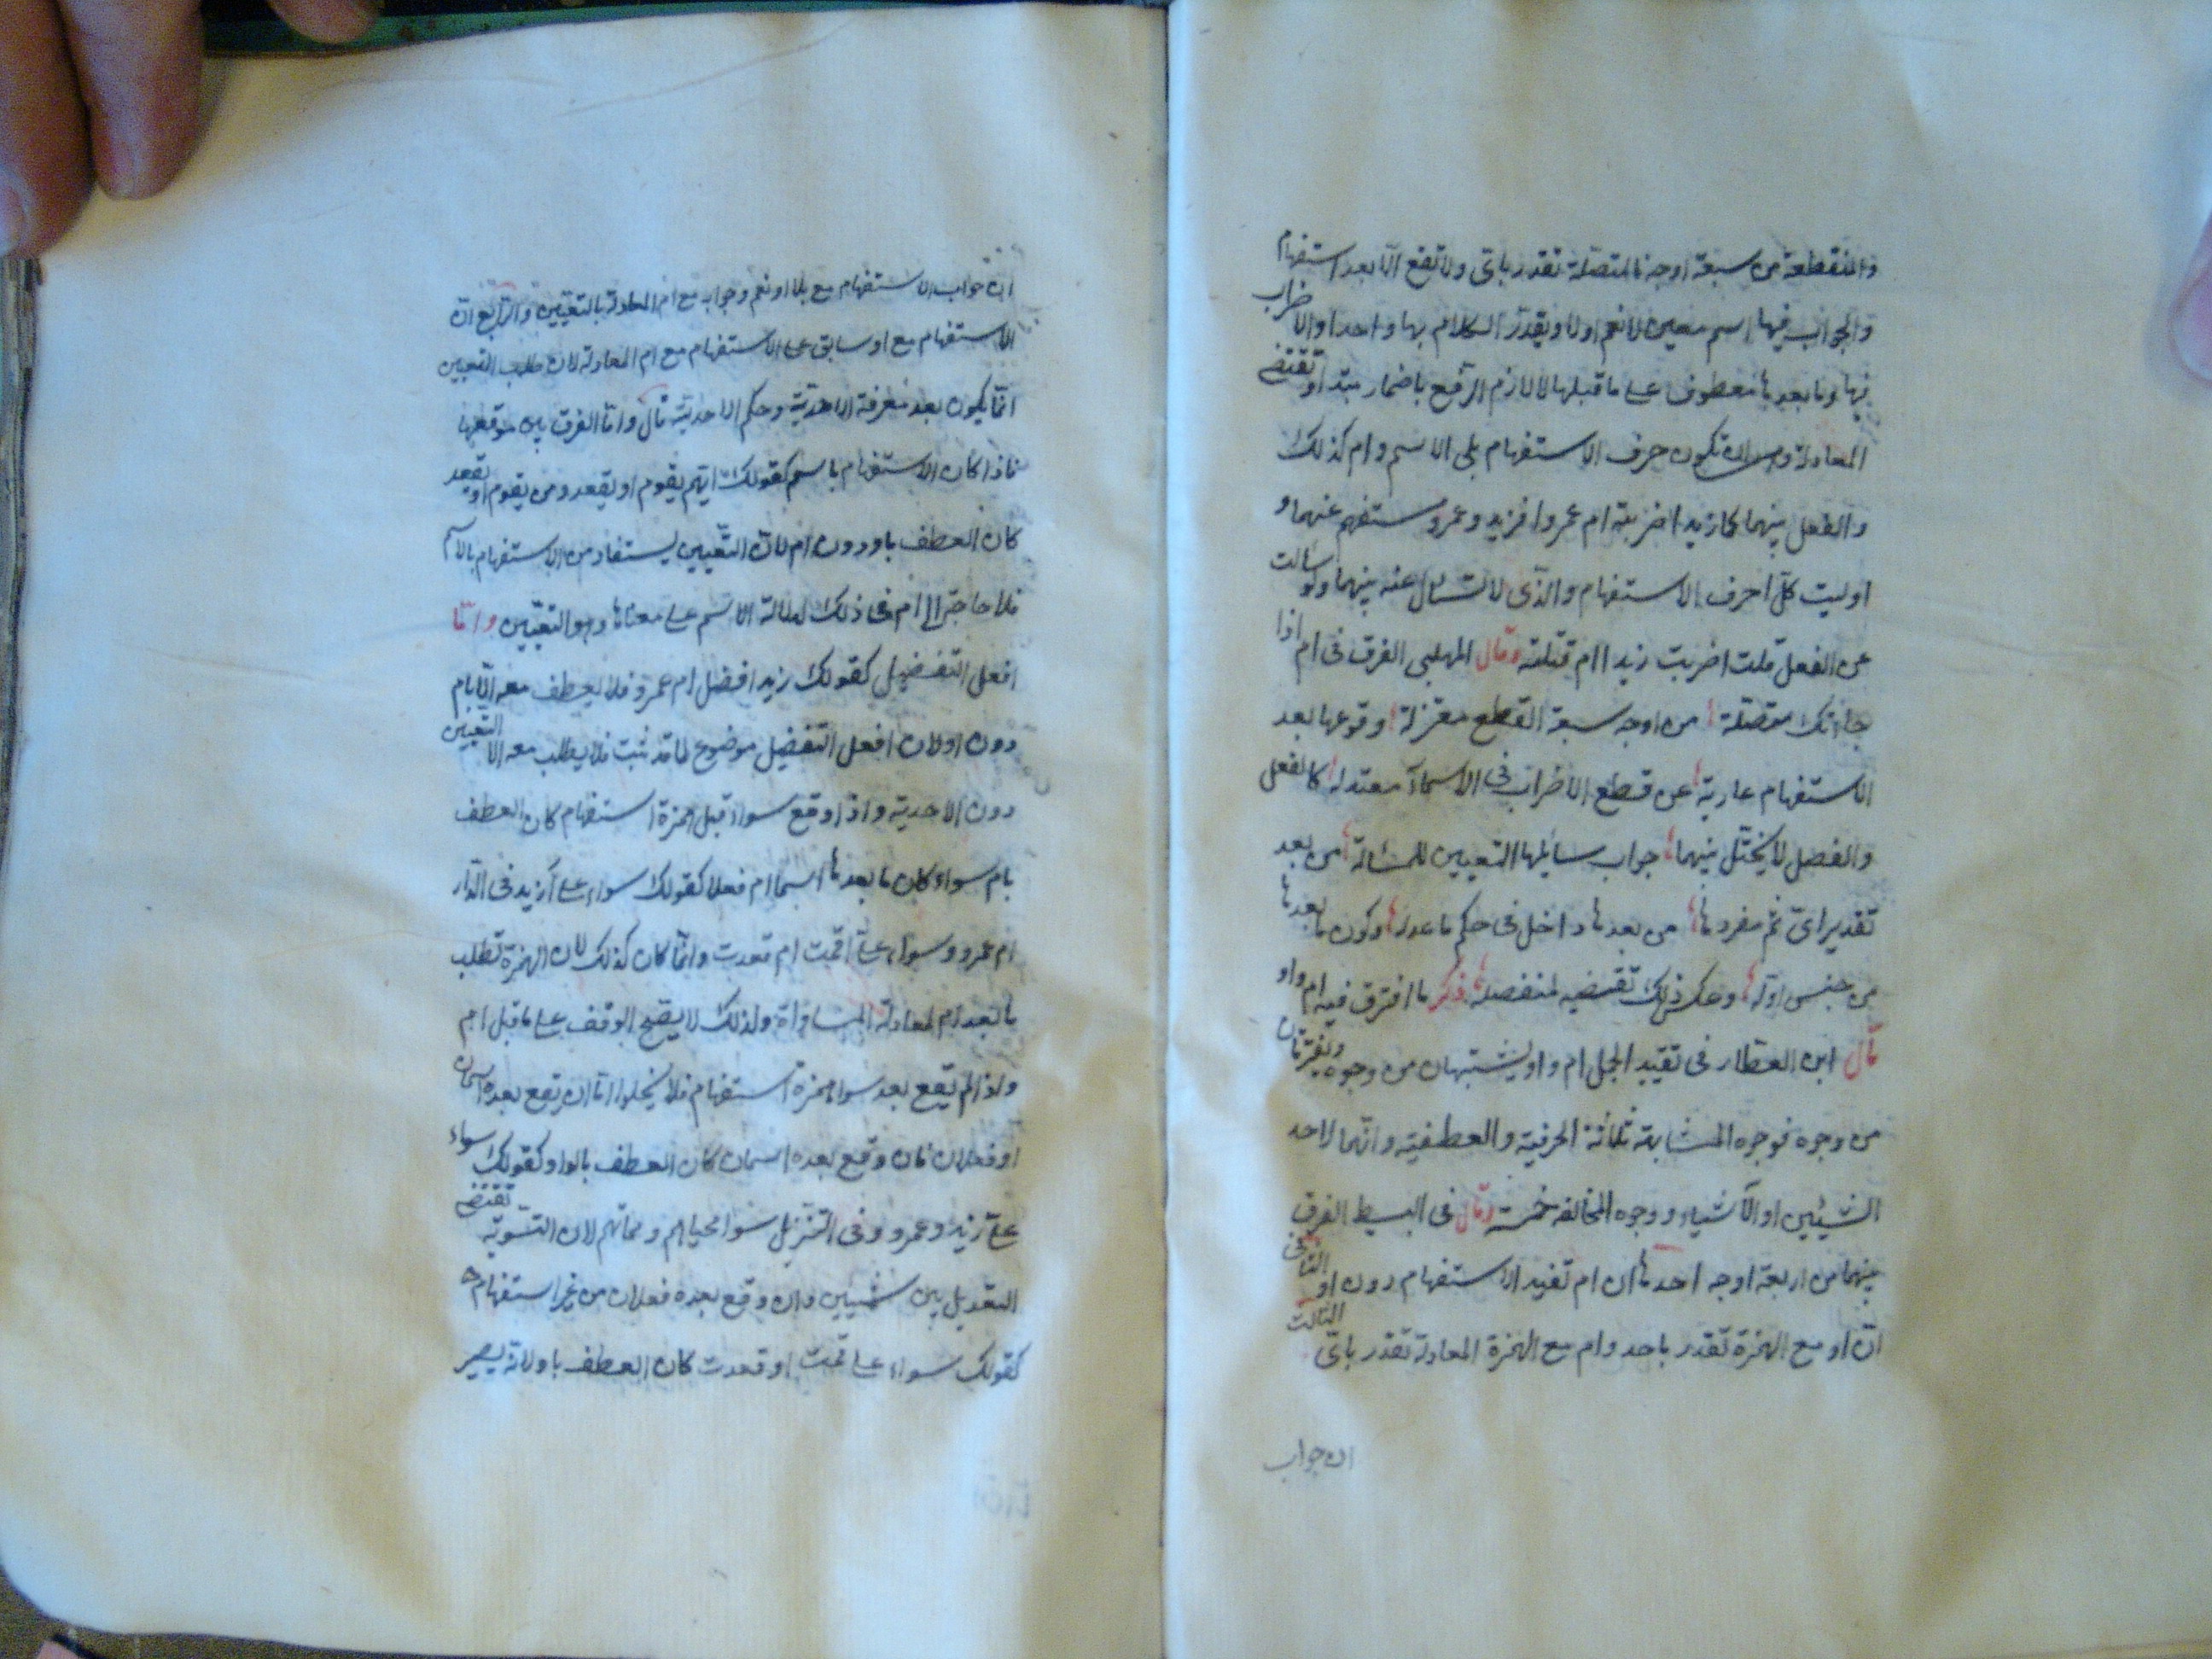 والمنقطعة من سبعة اوجه فالمتصلة تقدر باى ولا تقع الا بعد استفهام
والجواب فيها اسم معين لا نعم او لا ويقدر الكلام بها واحدا والاضراب
فيها وما بعدها معطوف على ما قبلها لا لازم الرفع باضمار مبتدا وتقتضى
المعادلة وهو ان تكون حرف الاستفهام يلى الاسم وام كذلك
والفعل بينهما كازيد اضربته ام عمروا فزيد وعمرو مستفهم عنهما و
اوليت كل احرف الاستفهام والذى لا تسال عنه بينهما ولو سالت
عن الفعل قلت اضربت زيدا ام قتلته وقال المهلبى الفرق فى ام اذا
جاءتك متصلة من اوجه سبعة القطع معتزلة وقوعها بعد
الاستفهام عارية عن قطع الاضراب فى الاسماء معتدلة كالفعل
والفصل لا يختل بينهما جواب سايلها التعيين للمسالة من بعد
تقدير اى ثم مفردها من بعدها داخل فى حكم ما عدلا وكون ما بعدها
من جنس اوله وعكس ذلك تقتضيه لمنفصلة ذكر ما افترق فيه ام واو
قال ابن العطار فى تقييد الجمل ام واو يشتبهان من وجوه ويفترقان
من وجوه فوجوه المشابهة ثلاثة الحرفية والعطفية وانهما لاحد
الشيئين او الاشياء ووجوه المخالفة خمسة وقال فى البسيط الفرق
بينهما من اربعة اوجه احدها ان ام تفيد الاستفهام دون او الثانى
ان او مع الهمزة تقدر باحد وام مع الهمزة المعادلة تقدر باى الثالث
ان جواب
ان جواب الاستفهام مع بلا او نعم وجوابه مع ام المعادلة بالتعيين والرابع ان
الاستفهام مع او سابق على الاستفهام مع ام المعادلة لان طلب التعيين
انما يكون بعد معرفة الاحدية وحكم الاحدية قال واما الفرق بين موقعها
فاذا كان الاستفهام باسم كقولك ايهم يقوم او يقعد ومن يقوم او يقعد
كان العطف باو دون ام لان التعيين يستفاد من الاستفهام بالاسم
فلا حاجة الى ام فى ذلك لدلالة الاسم على معناها وهو التعيين واما
افعل التفضيل كقولك زيد افضل ام عمرو فلا يعطف معه الا بام
دون او لان افعل التفضيل موضوع لما قد ثبت فلا يطلب معه الا التعيين
دون الاحدية واذا وقع سواء قبل همزة استفهام كان العطف
بام سواء كان ما بعدها اسما ام فعلا كقولك سواء على ازيد فى الدار
ام عمرو وسواء على اقمت ام قعدت وانما كان كذلك لان الهمزة تطلب
ما بعد ام لمعادلة المساواة ولذلك لا يصح الوقف على ما قبل ام
واذا لم تقع بعد سوا همزة استفهام فلا يخلوا اما ان يقع بعده اسمان
او فعلان فان وقع بعده اسمان كان العطف بالواو كقولك سواء
على زيد وعمرو وفى التنزيل سوا محياهم ومماتهم لان التسوية تقتضى
التعديل بين شيئين وان وقع بعده فعلان من غير استفهام
كقولك سواء على قمت او قعدت كان العطف باو لانه يصير